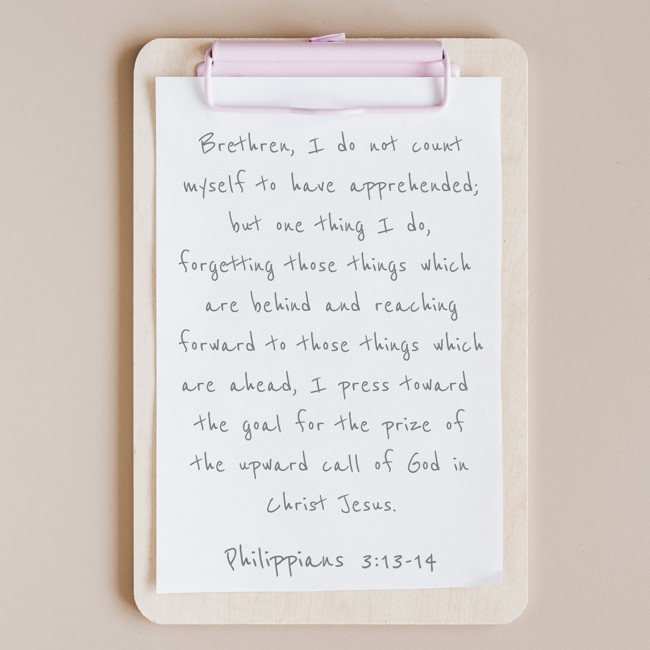 Brethren, I do not count
myself to have apprehended;
but one thing I do,
forgetting those things which
are behind and reaching
forward to those things which
are ahead, I press toward
the goal for the prize of
the upward call of God in
Christ Jesus.
Philippians 3:13-14